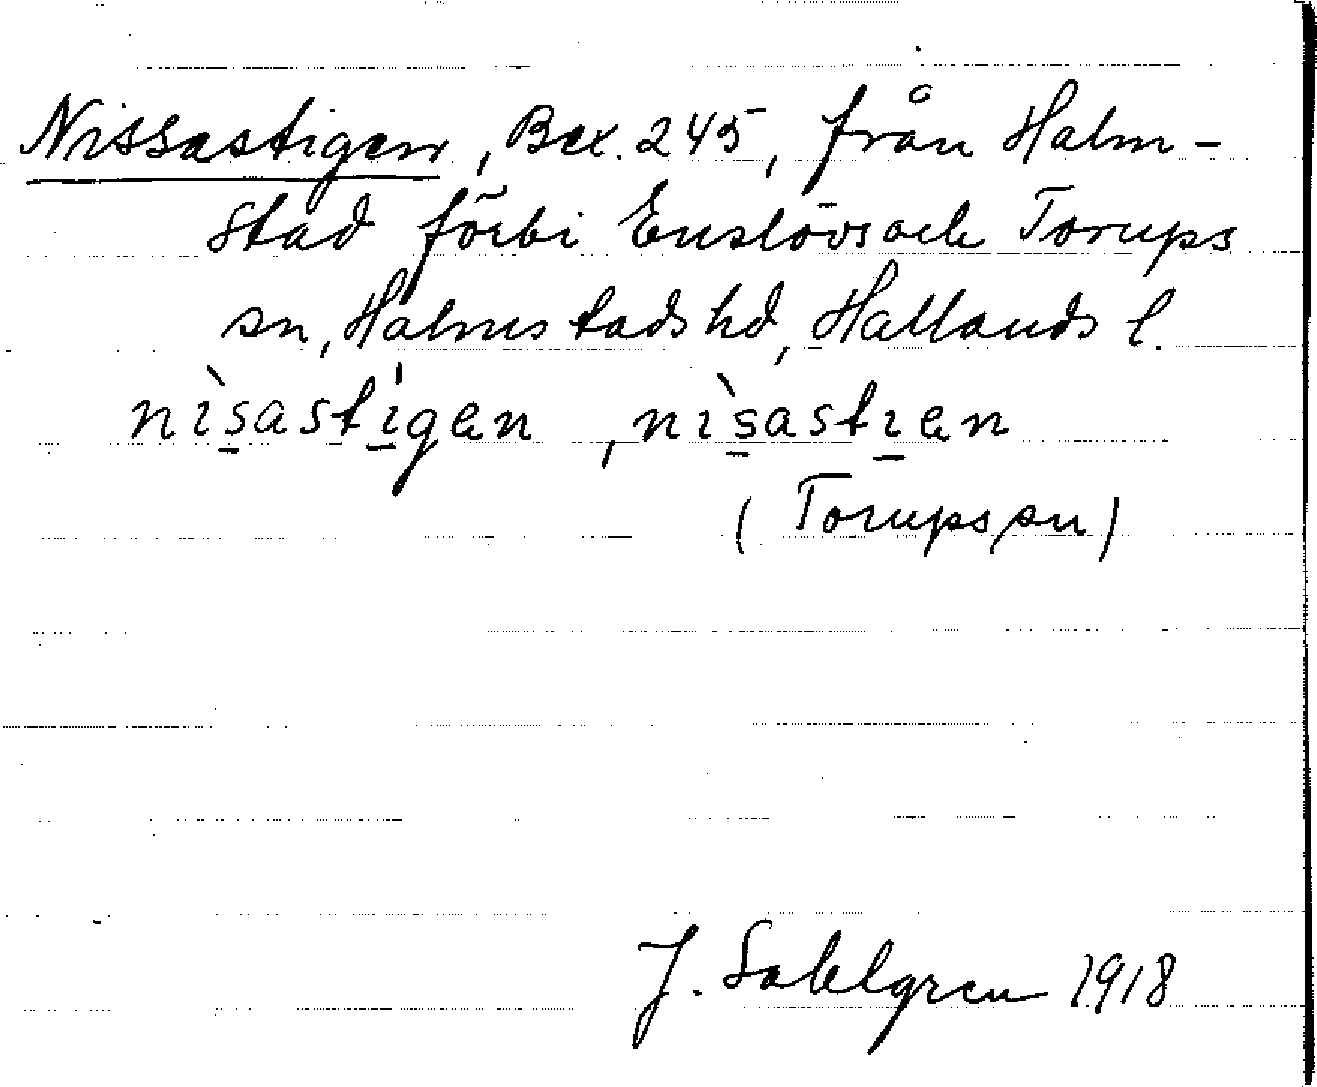 Nissastigen, Bex. 245, från Halm-
stad förbi Enslövs och Torups
sn, Halmstads hd, Hallands l.
nìs̱astí̱gen, nìs̱asti̱en
(Torups sn)
J. Sahlgren 1918